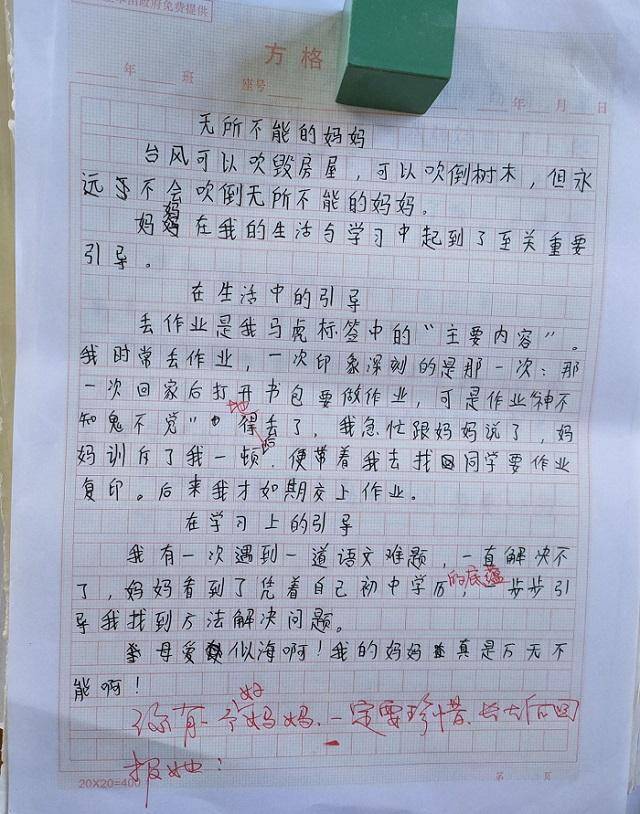 政府免费提供
方格
年 班 座号 年 月 日
无所不能的妈妈
台风可以吹毁房屋，可以吹倒树木，但永
远不会吹倒无所不能的妈妈。
妈妈在我的生活与学习中起到了至关重要
引导。
在生活中的引导
丢作业是我马虎标签中的“主要内容”。
我时常丢作业，一次印象深刻的是那一次：那
一次回家后打开书包要做作业，可是作业“神不
知鬼不觉”地得丢了，我急忙跟妈妈说了，妈
妈训斥了我一顿，便带着我去找同学要作业
复印。后来我才如期交上作业。
在学习上的引导
我有一次遇到一道语文难题，一直解决不
了，妈妈看到了凭着自己初中学历的底蕴，一步步引
导我找到方法解决问题。
母爱似海啊！我的妈妈真是万无不
能啊！
你有一个好妈妈，一定要珍惜，长大后回
报她！
20X20=400 第 页